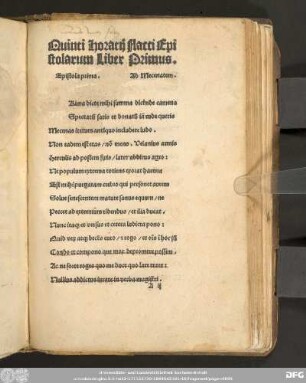 Quinti Horatij Flacci Epi
stolarum Liber Primus.
Epistola prima. Ad Mecenatem.
Rima dicte mihi summa dicende camena
Spectatū satis et donatū iā rude queris
Mecenas iterum antiquo includere ludo.
Non eadem est etas / nō mens. Veianius armis
Herculis ad postem fixis / latet abditus agro:
Ne populum extrema totiens exoret harena
Est mihi purgatam crebro qui personet aurem
Solue senescentem mature sanus equum / ne
Peccet ad extremum ridendus / et ilia ducat.
Nunc itaq et versus et cetera ludicra pono:
Quid verū atq decēs curo / et rogo / et oīs ī hoc sū
Condo et compono que mox depromere possim.
Ac ne forte roges quo me duce quo lare tuter:
Nullius addictus iurare in verba magistri.
A ij
DFG